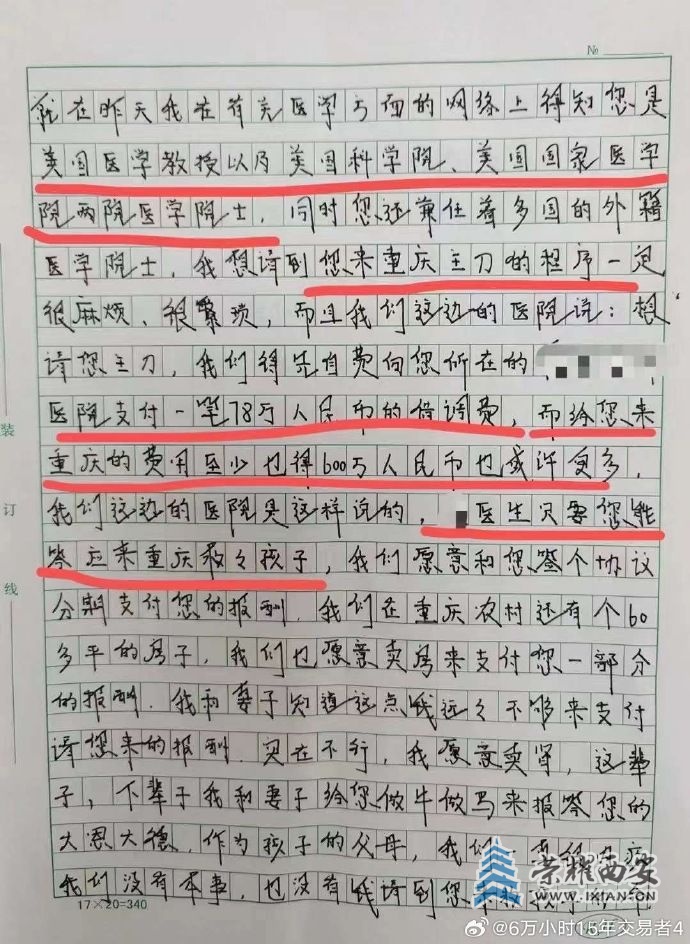 №
就在昨天我在有关医学方面的网络上得知您是
美国医学教授以及美国科学院、美国国家医学
院两院医学院士，同时您还兼任着多国的外籍
医学院士，我想请到您来重庆主刀的程序一定
很麻烦、很繁琐，而且我们这边的医院说：想
请您主刀，我们得先自费向您所在的
医院支付一笔78万人民币的借调费，而给您来
重庆的费用至少也得600万人民币也或许更多，
我们这边的医院是这样说的，医生只要您能
答应来重庆救救孩子，我们愿意和您签个协议
分期支付您的报酬．我们在重庆农村还有个60
多平的房子，我们也愿意卖房来支付您一部分
的报酬．我和妻子知道这点钱远远不够来支付
请您来的报酬．实在不行，我愿意卖肾，这辈
子，下辈子我和妻子给您做牛做马来报答您的
大恩大德，作为孩子的父母，我们
我们没有本事，也没有钱请到您
装
订
线
17×20=340
荣耀西安
WWW.IXIAN.CN
@6万小时15年交易者4